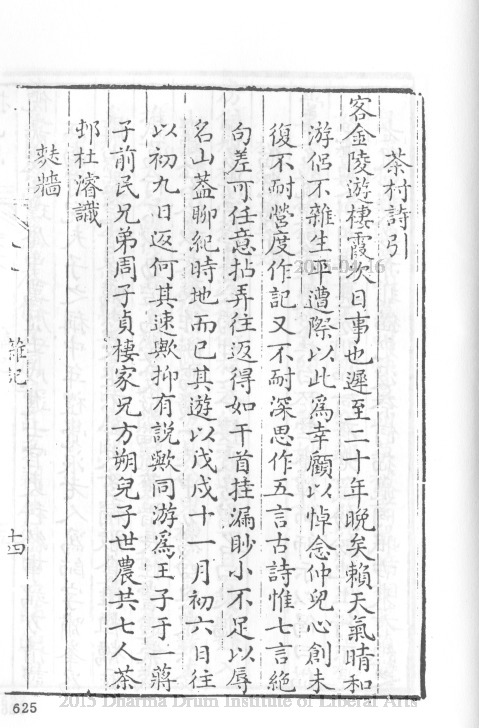 茶村詩引
客金陵遊棲霞次日事也遲至二十年晚矣賴天氣晴和
游侶不雜生平遭際以此爲幸顧以悼念仲兒心創未
復不耐營度作記又不耐深思作五言古詩惟七言絶
句差可任意拈弄往返得如干首挂漏眇小不足以辱
名山葢聊紀時地而已其遊以戊戌十一月初六日往
以初九日返何其速歟抑有說歟同游爲王子于一蔣
子前民兄弟周子貞棲家兄方朔兒子世農共七人茶
邨杜濬識
㷠牆
雜記
十四
625
2015-04-16
2015 Dharma Drum Institute of Liberal Arts